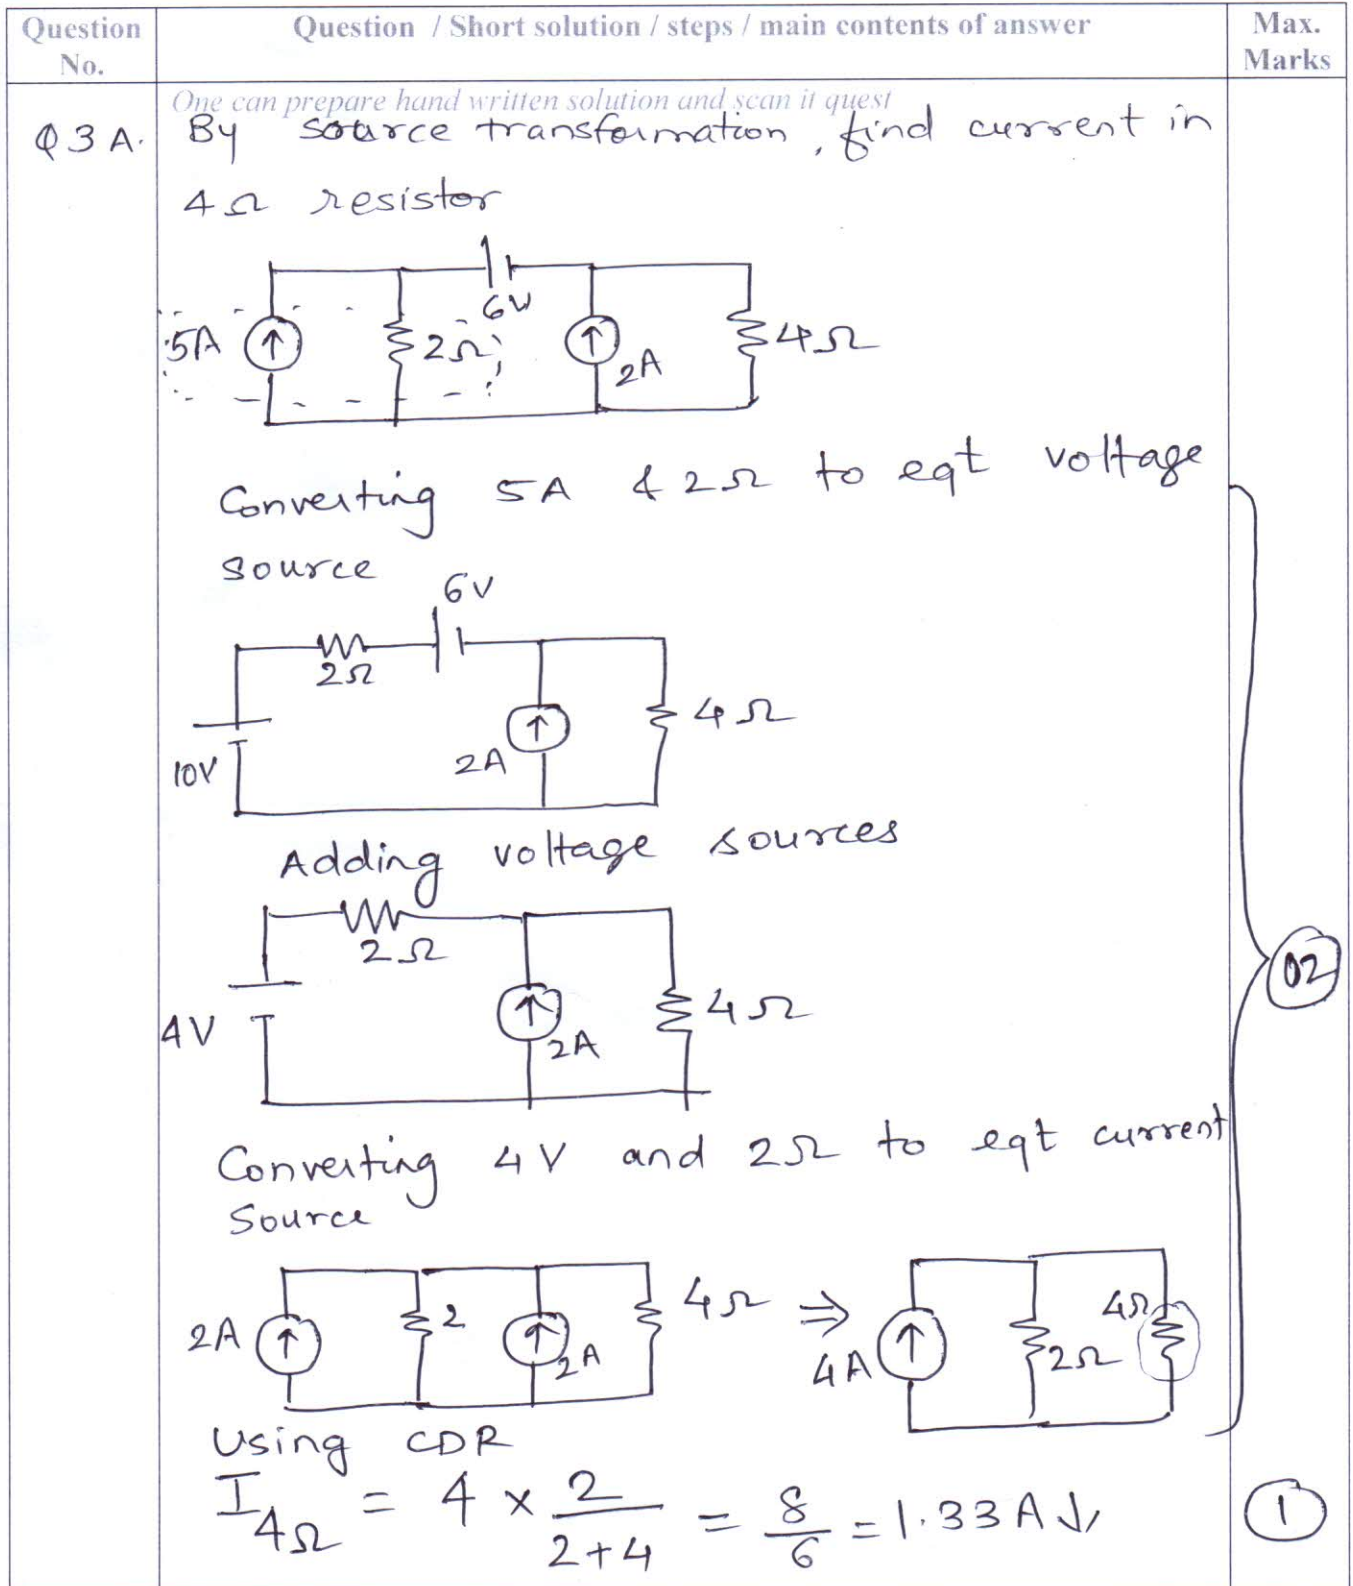 Question No.
Question / Short solution / steps / main contents of answer
Max. Marks
One can prepare hand written solution and scan it quest
Q3A. By source transformation, find current in
4Ω resistor
5A
2Ω
6V
2A
4Ω
Converting 5A & 2Ω to eqt voltage
source
6V
2Ω
10V
2A
4Ω
Adding voltage sources
2Ω
4V
2A
4Ω
02
Converting 4V and 2Ω to eqt current
Source
2A
2
2A
4Ω ⇒
4A
2Ω
4Ω
Using CDR
I4Ω = 4 × 2/2+4 = 8/6 = 1.33A ↓
1